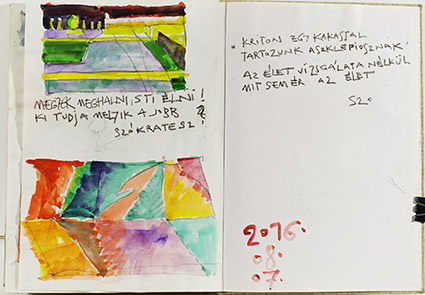 MEGYEK MEGHALNI, S TI ÉLNI!
KI TUDJA MELYIK A JOBB ?
SZÓKRATESZ!
"KRITON EGY KAKASSAL
TARTOZUNK ASZKLEPIOSZNAK!
AZ ÉLET VIZSGÁLATA NÉLKÜL
MIT SEM ÉR AZ ÉLET
SZO
2016.
08.
07.